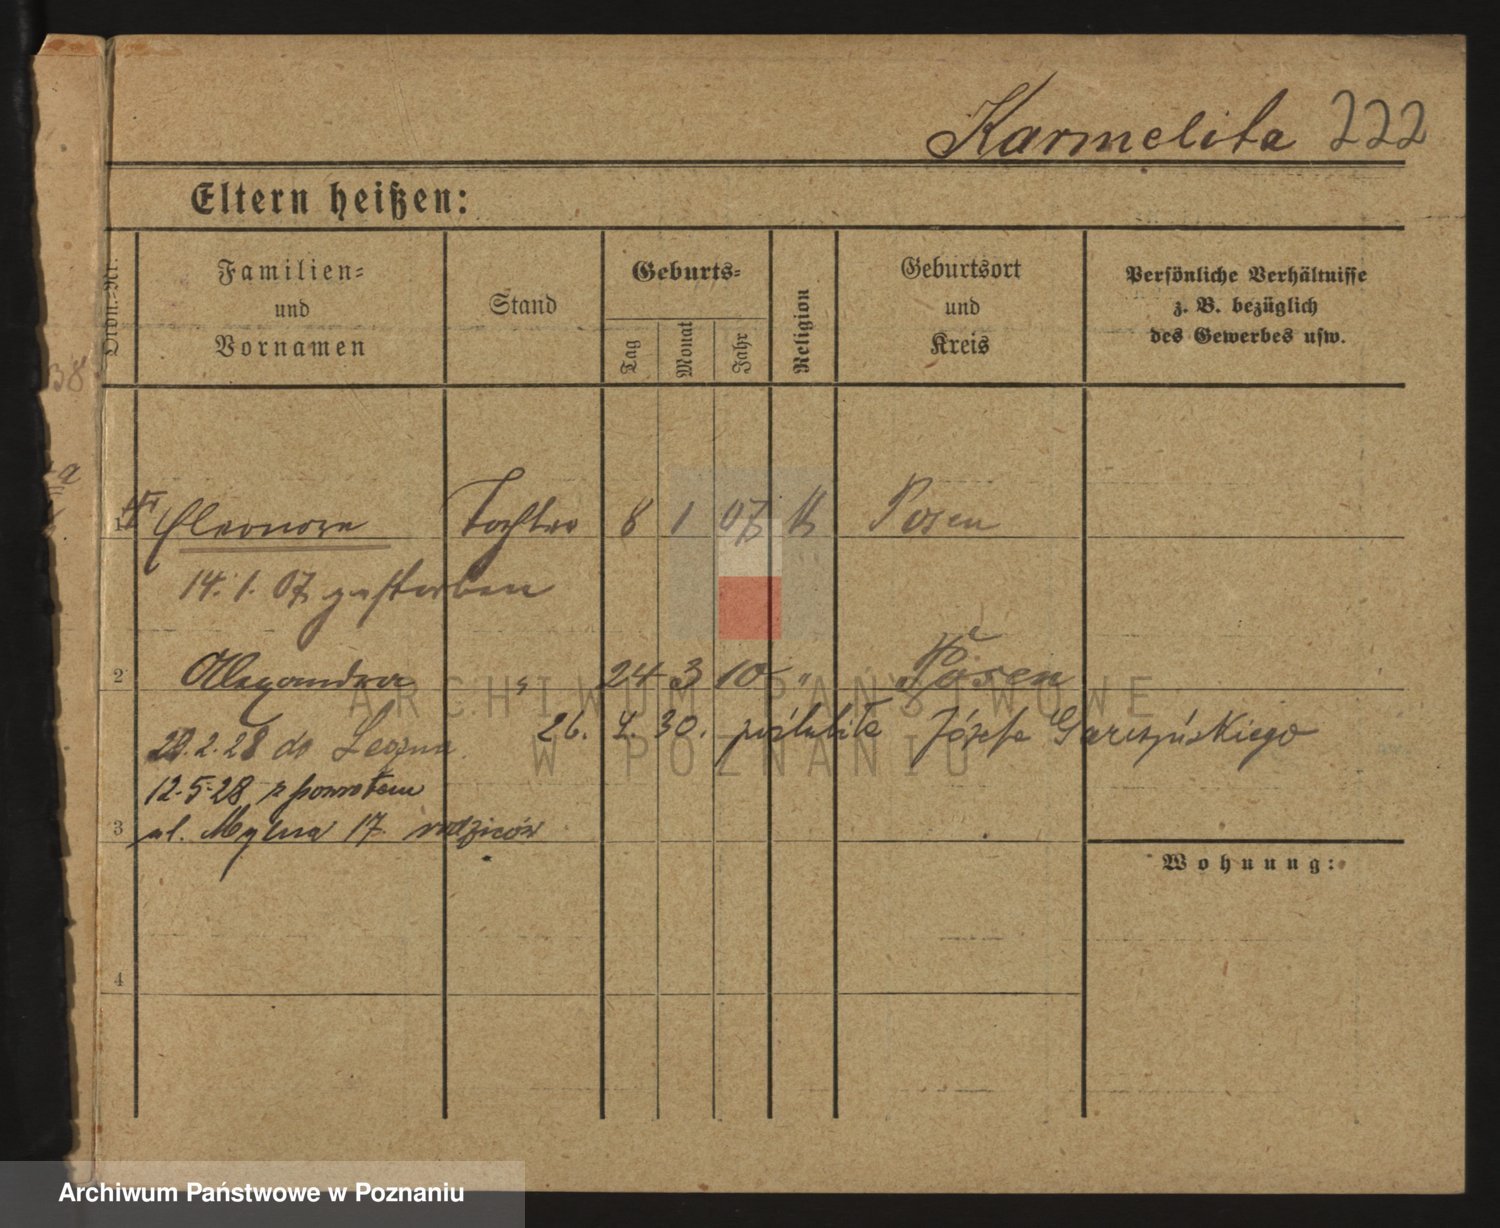 Karmelita 222
Eltern heißen:
Ordn.-Nr.
Familien-
und
Vornamen
Stand
Geburts-
Tag
Monat
Jahr
Religion
Geburtsort
und
Kreis
Persönliche Verhältnisse
z. B. bezüglich
des Gewerbes usw.
38
a
1 Eleonore Tochter 8 1 07 k Posen
14. 1. 07 gestorben
2 Alexandra " 24 3 10 " Posen
26. 4. 30. poślubiła Józefa Garczyńskiego
2.28 do Leszna
12.5.28 z powrotem
3 ul. Mylna 17 rodziców
Wohnung:
4
ARCHIWUM PAŃSTWOWE
W POZNANIU
Archiwum Państwowe w Poznaniu